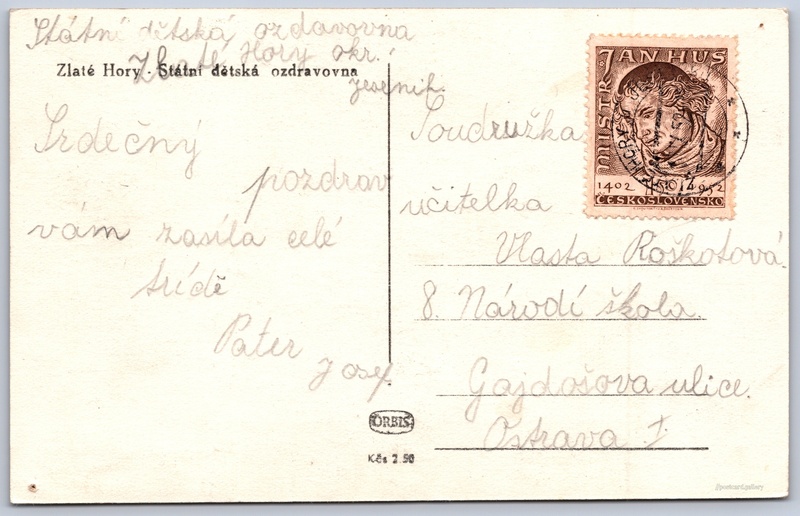 Státní dětská ozdravovna
Zlaté Hory okr.
Jeseník.
Zlaté Hory - Státní dětská ozdravovna
Srdečný
pozdrav
vám zasíla celé
třídě
Pater
Josef.
ORBIS
Kčs 2.50
MISTR JAN HUS
1402 1952
ČESKOSLOVENSKO
Soudružka
učitelka
Vlasta Roškotová
8. Národí škola.
Gajdošova ulice.
Ostrava I